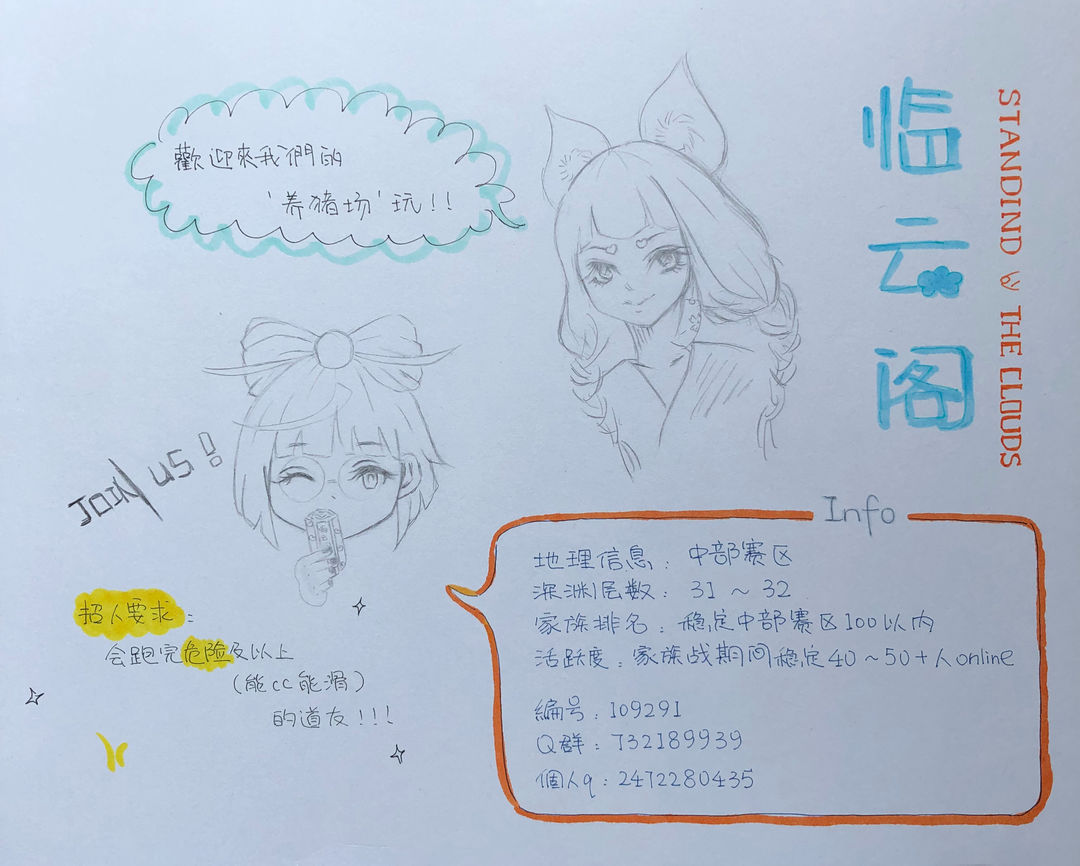 歡迎來我們的
'养猪场'玩!!
临云阁
STANDIND by THE CLOUDS
JOIN us!
招人要求:
会跑完危险及以上
(能cc能滑)
的道友!!!
Info
地理信息: 中部赛区
深渊层数: 31~32
家族排名: 稳定中部赛区100以内
活跃度: 家族战期间稳定40~50+人online
编号: 109291
Q群: 732189939
個人q: 2472280435